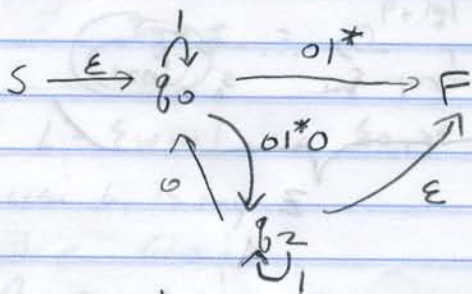 1
S ε q0 01* F
0 01*0 ε
q2
1